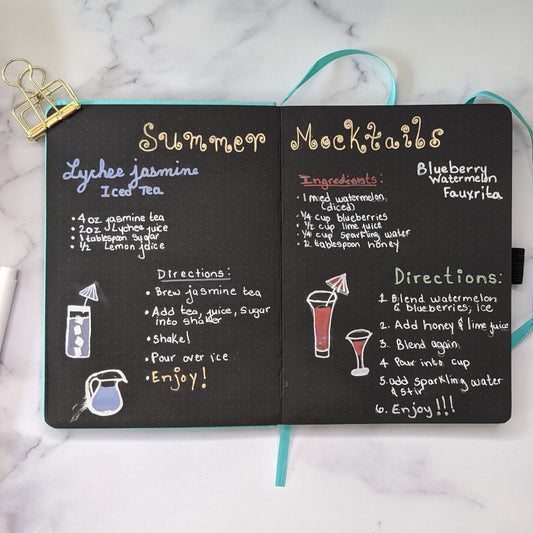 Summer Mocktails
Lychee jasmine
Iced Tea
• 4 oz jasmine tea
• 2 oz Lychee juice
• 1 tablespoon sugar
• ½ Lemon juice
Directions:
• Brew jasmine tea
• Add tea, juice, sugar
into shaker
• shake!
• Pour over ice
• Enjoy!
Blueberry
Watermelon
Fauxrita
Ingredients:
• 1 med watermelon,
(diced)
• ¼ cup blueberries
• ½ cup lime juice
• ¼ cup sparkling water
• 2 tablespoon honey
Directions:
1. Blend watermelon
& blueberries, ice
2. Add honey & lime juice
3. Blend again
4 Pour into cup
5. add sparkling water
& stir
6. Enjoy!!!